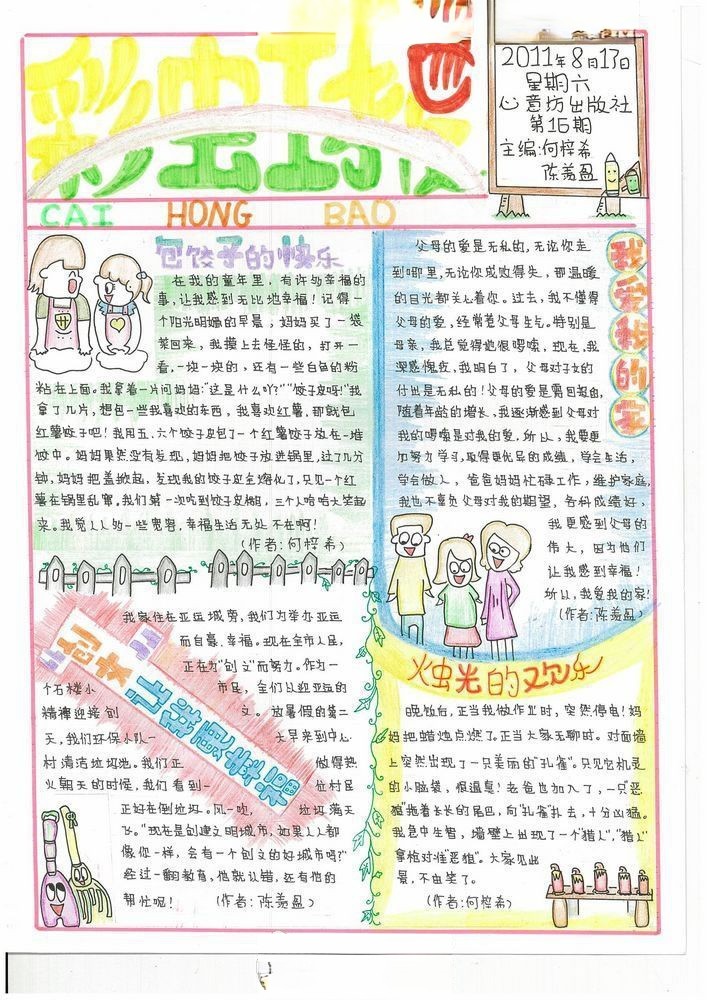 彩虹报
CAI HONG BAO
2011年8月17日
星期六
心意坊出版社
第16期
主编:何梓希
陈羡盈
包饺子的快乐
在我的童年里，有许多幸福的
事，让我感到无比地幸福！记得一
个阳光明媚的早晨，妈妈买了一袋
菜回来，我摸上去怪怪的，打开一
看，一块一块的，还有一些白色的粉
粘在上面。我拿着一片问妈妈:“这是什么吖?”“饺子皮呀!”我
拿了几片，想包一些我喜欢的东西，我喜欢红薯，那就包
红薯饺子吧！我用五、六个饺子皮包了一个红薯饺子放在一堆
饺中。妈妈果然没有发现，妈妈把饺子放进锅里，过了几分
钟，妈妈把盖掀起，发现我的饺子皮全熔化了，只见一个红
薯在锅里乱窜。我们第一次吃到饺子皮糊，三个人哈哈大笑起
来。我觉人人多一些宽容，幸福生活无处不在啊！
(作者:何梓希)
父母的爱是无私的，无论你走
到哪里，无论你成败得失，那温暖
的目光都关心着你。过去，我不懂得
父母的爱，经常惹父母生气。特别是
母亲，我总觉得她很啰嗦，现在，我
深感愧疚，我明白了，父母对子女的
付出是无私的！父母的爱是需回报的，
随着年龄的增长，我逐渐感到父母对
我的啰嗦是对我的爱，所以，我要更
加努力学习，取得更优异的成绩，学会生活，
学会做人，爸爸妈妈忙碌工作，维护家庭，
我也不辜负父母对我的期望，各科成绩好，
我更感到父母的
伟大，因为他们
让我感到幸福！
所以，我爱我的家！
(作者:陈羡盈)
我爱我的家
我家住在亚运城旁，我们为举办亚运
而自豪、幸福。现在全市人民，
正在为“创文”而努力。作为一
个石楼小市民，全们以迎亚运的
精神迎接创文。放暑假的第二
天，我们环保小队一大早来到中心
村清洁垃圾池。我们正做得热
火朝天的时候，我们看到一位村民
正好在倒垃圾。风一吹，垃圾满天
飞。“现在是创建文明城市，如果人人都
像你一样，会有一个创文的好城市吗?”
经过一翻教育，他就认错，还有他的
帮忙呢！(作者:陈羡盈)
烛光的欢乐
晚饭后，正当我做作业时，突然停电！妈
妈把蜡烛点燃了。正当大家无聊时。对面墙
上突然出现了一只美丽的“孔雀”。只见它机灵
的小脑袋，很温意！老爸也加入了，一只“恶
狼”拖着长长的尾巴，向“孔雀”扑去，十分凶猛。
我急中生智，墙壁上出现了一个“猎人”，“猎人”
拿枪对准“恶狼”。大家见此
景，不由笑了。
(作者:何梓希)